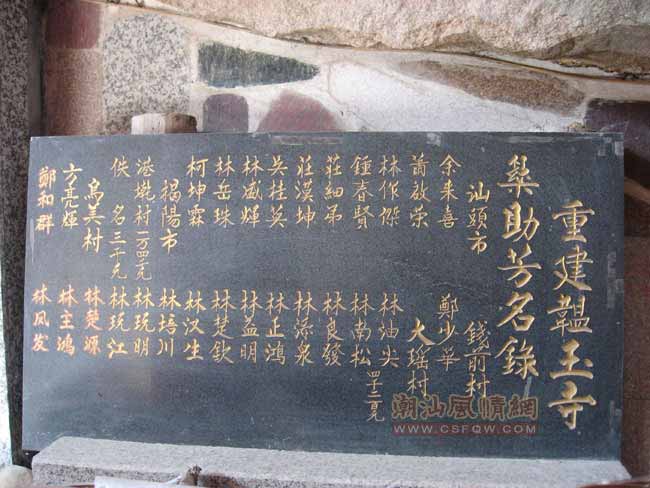 重建韞玉寺
樂助芳名錄
汕頭市 錢前村
余来喜 鄭少華
萧啟荣 大瑶村
林作傑 林灿尖
鍾春賢 林南松
莊細弟 林良發
莊漢坤 林添泉
吳桂英 林正鴻
林盛輝 林益明
林岳珠 林楚欽
柯坤霖 林汉生
揭陽市 林培川
港墘村 林玩明
佚名三千元 林玩江
烏美村 林楚源
方亮輝 林主鴻
鄭和群 林风发
潮汕風情網
WWW.CSFQW.COM